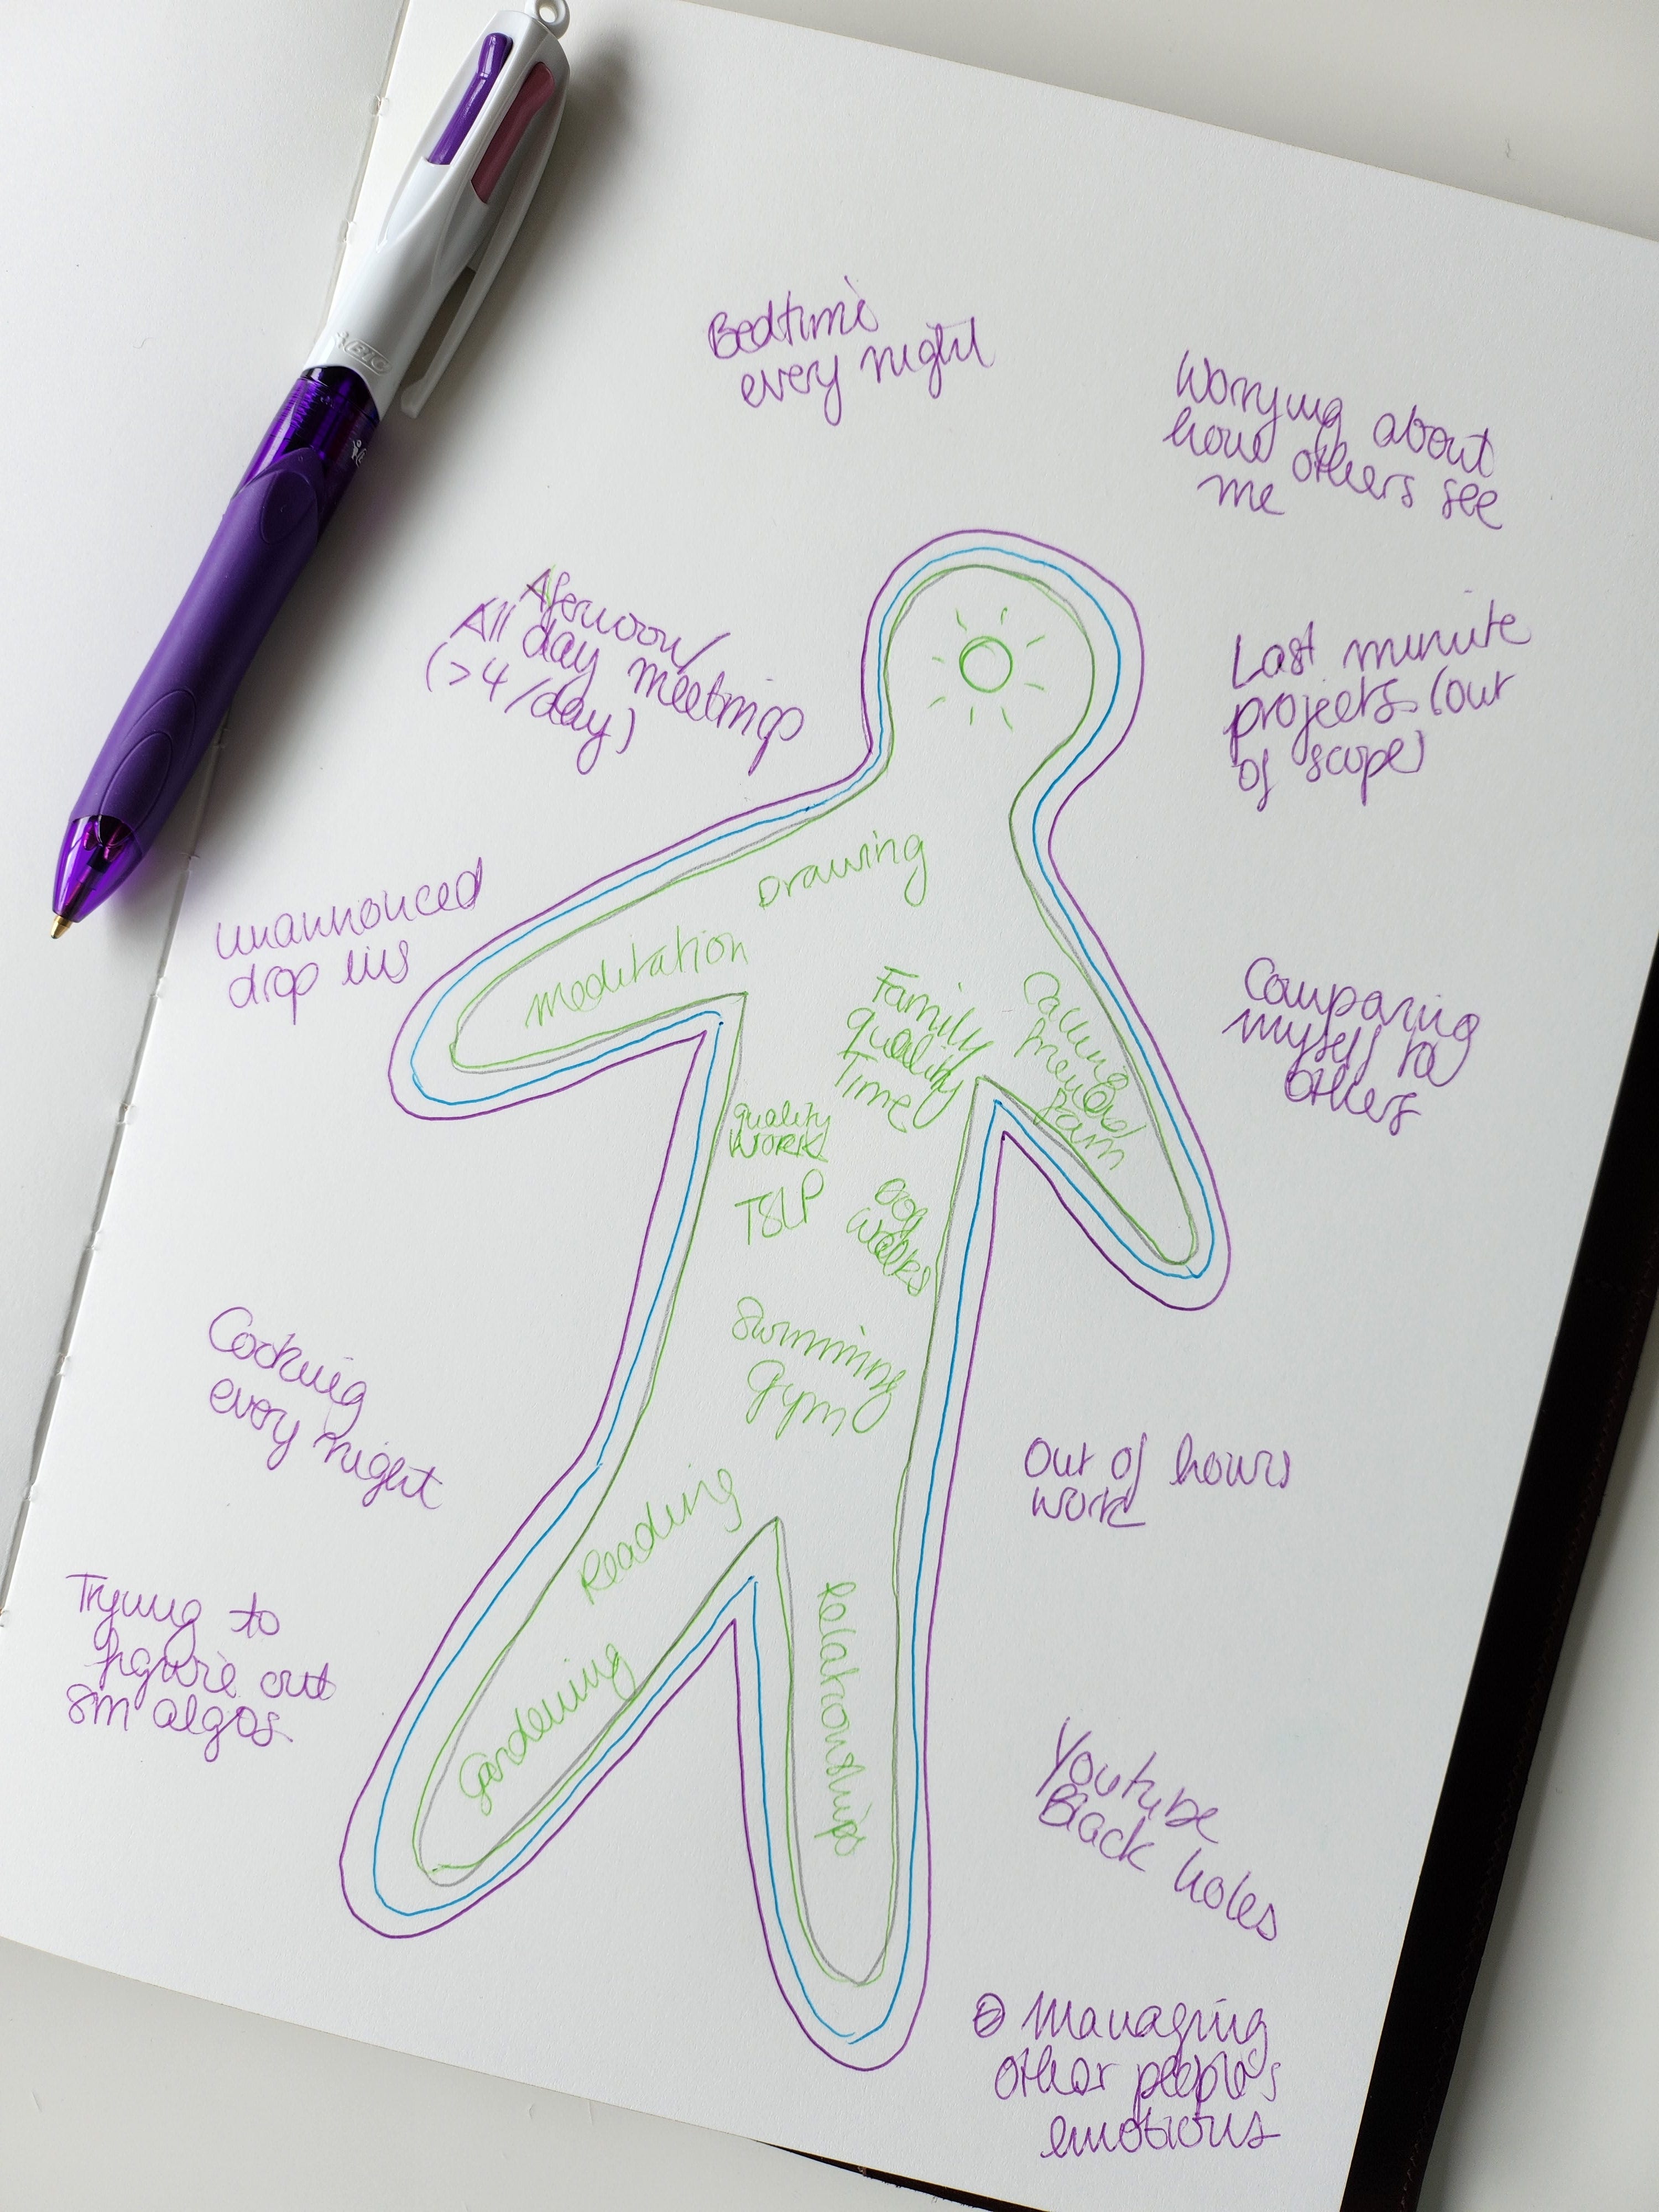 BIC
Bedtime
every night
Worrying about
how others see
me
Afernoon/
All day meetings
(>4/day)
Last minute
projects (out
of scope)
Drawing
unannouced
drop ins
meditation
Family
quality
Time
Calling
friends
fam
Comparing
myself to
others
quality
work
TSLP
Dog
walks
Swimming
Gym
Cooking
every night
Out of hours
work
Reading
Trying to
figure out
SM algos
Gardening
Relationships
Youtube
Black holes
Managing
other people's
emotions